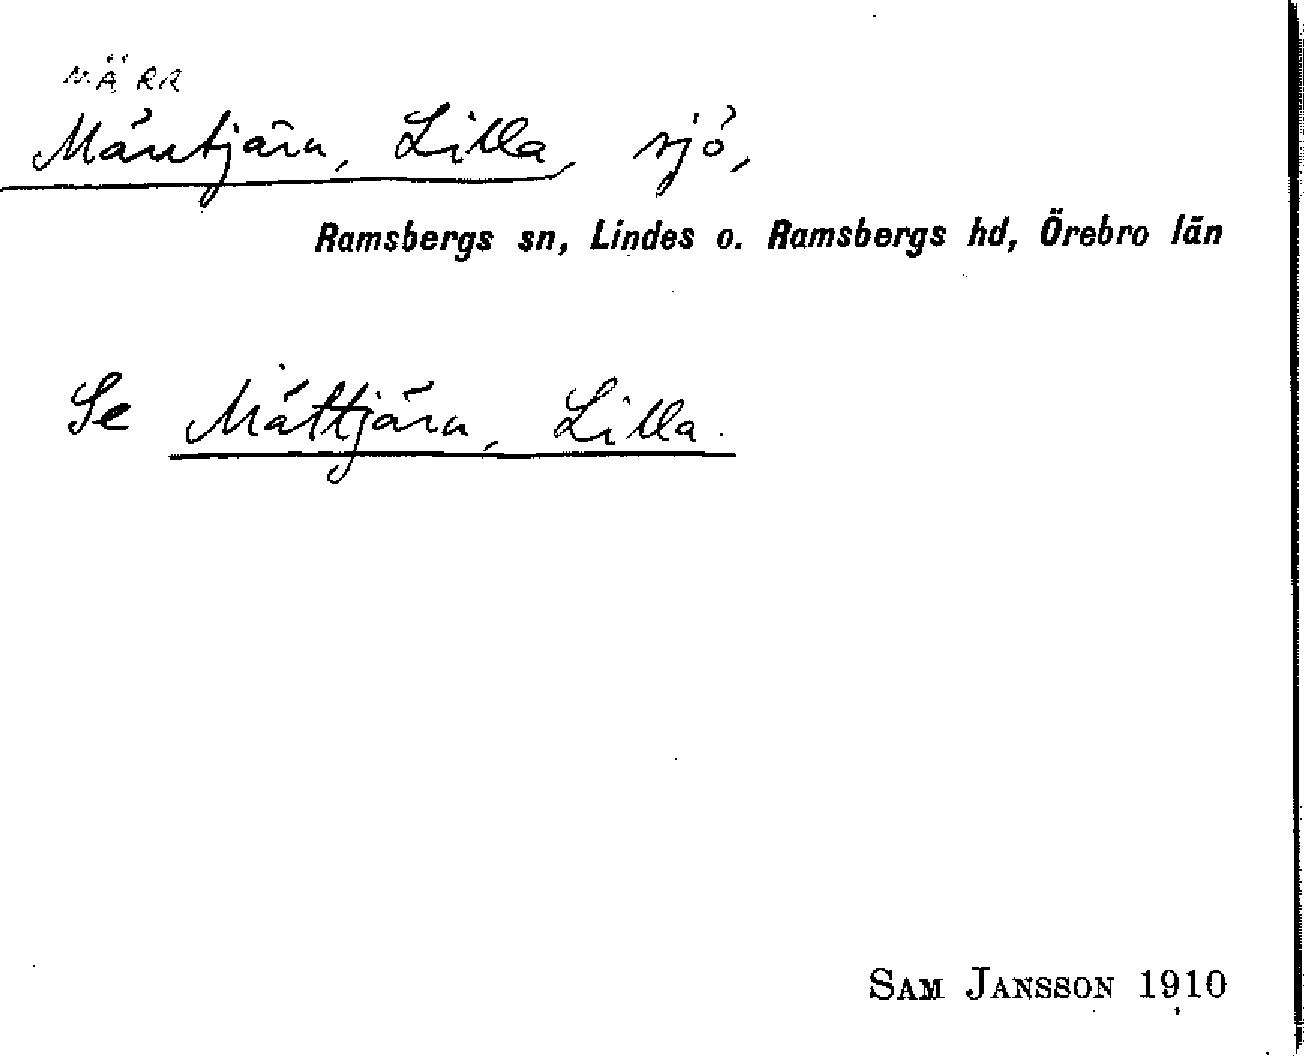 MÄRR
Märrtjärn, Lilla, sjö,
Ramsbergs sn, Lindes o. Ramsbergs hd, Örebro län
Se Mättjärn, Lilla.
SAM JANSSON 1910